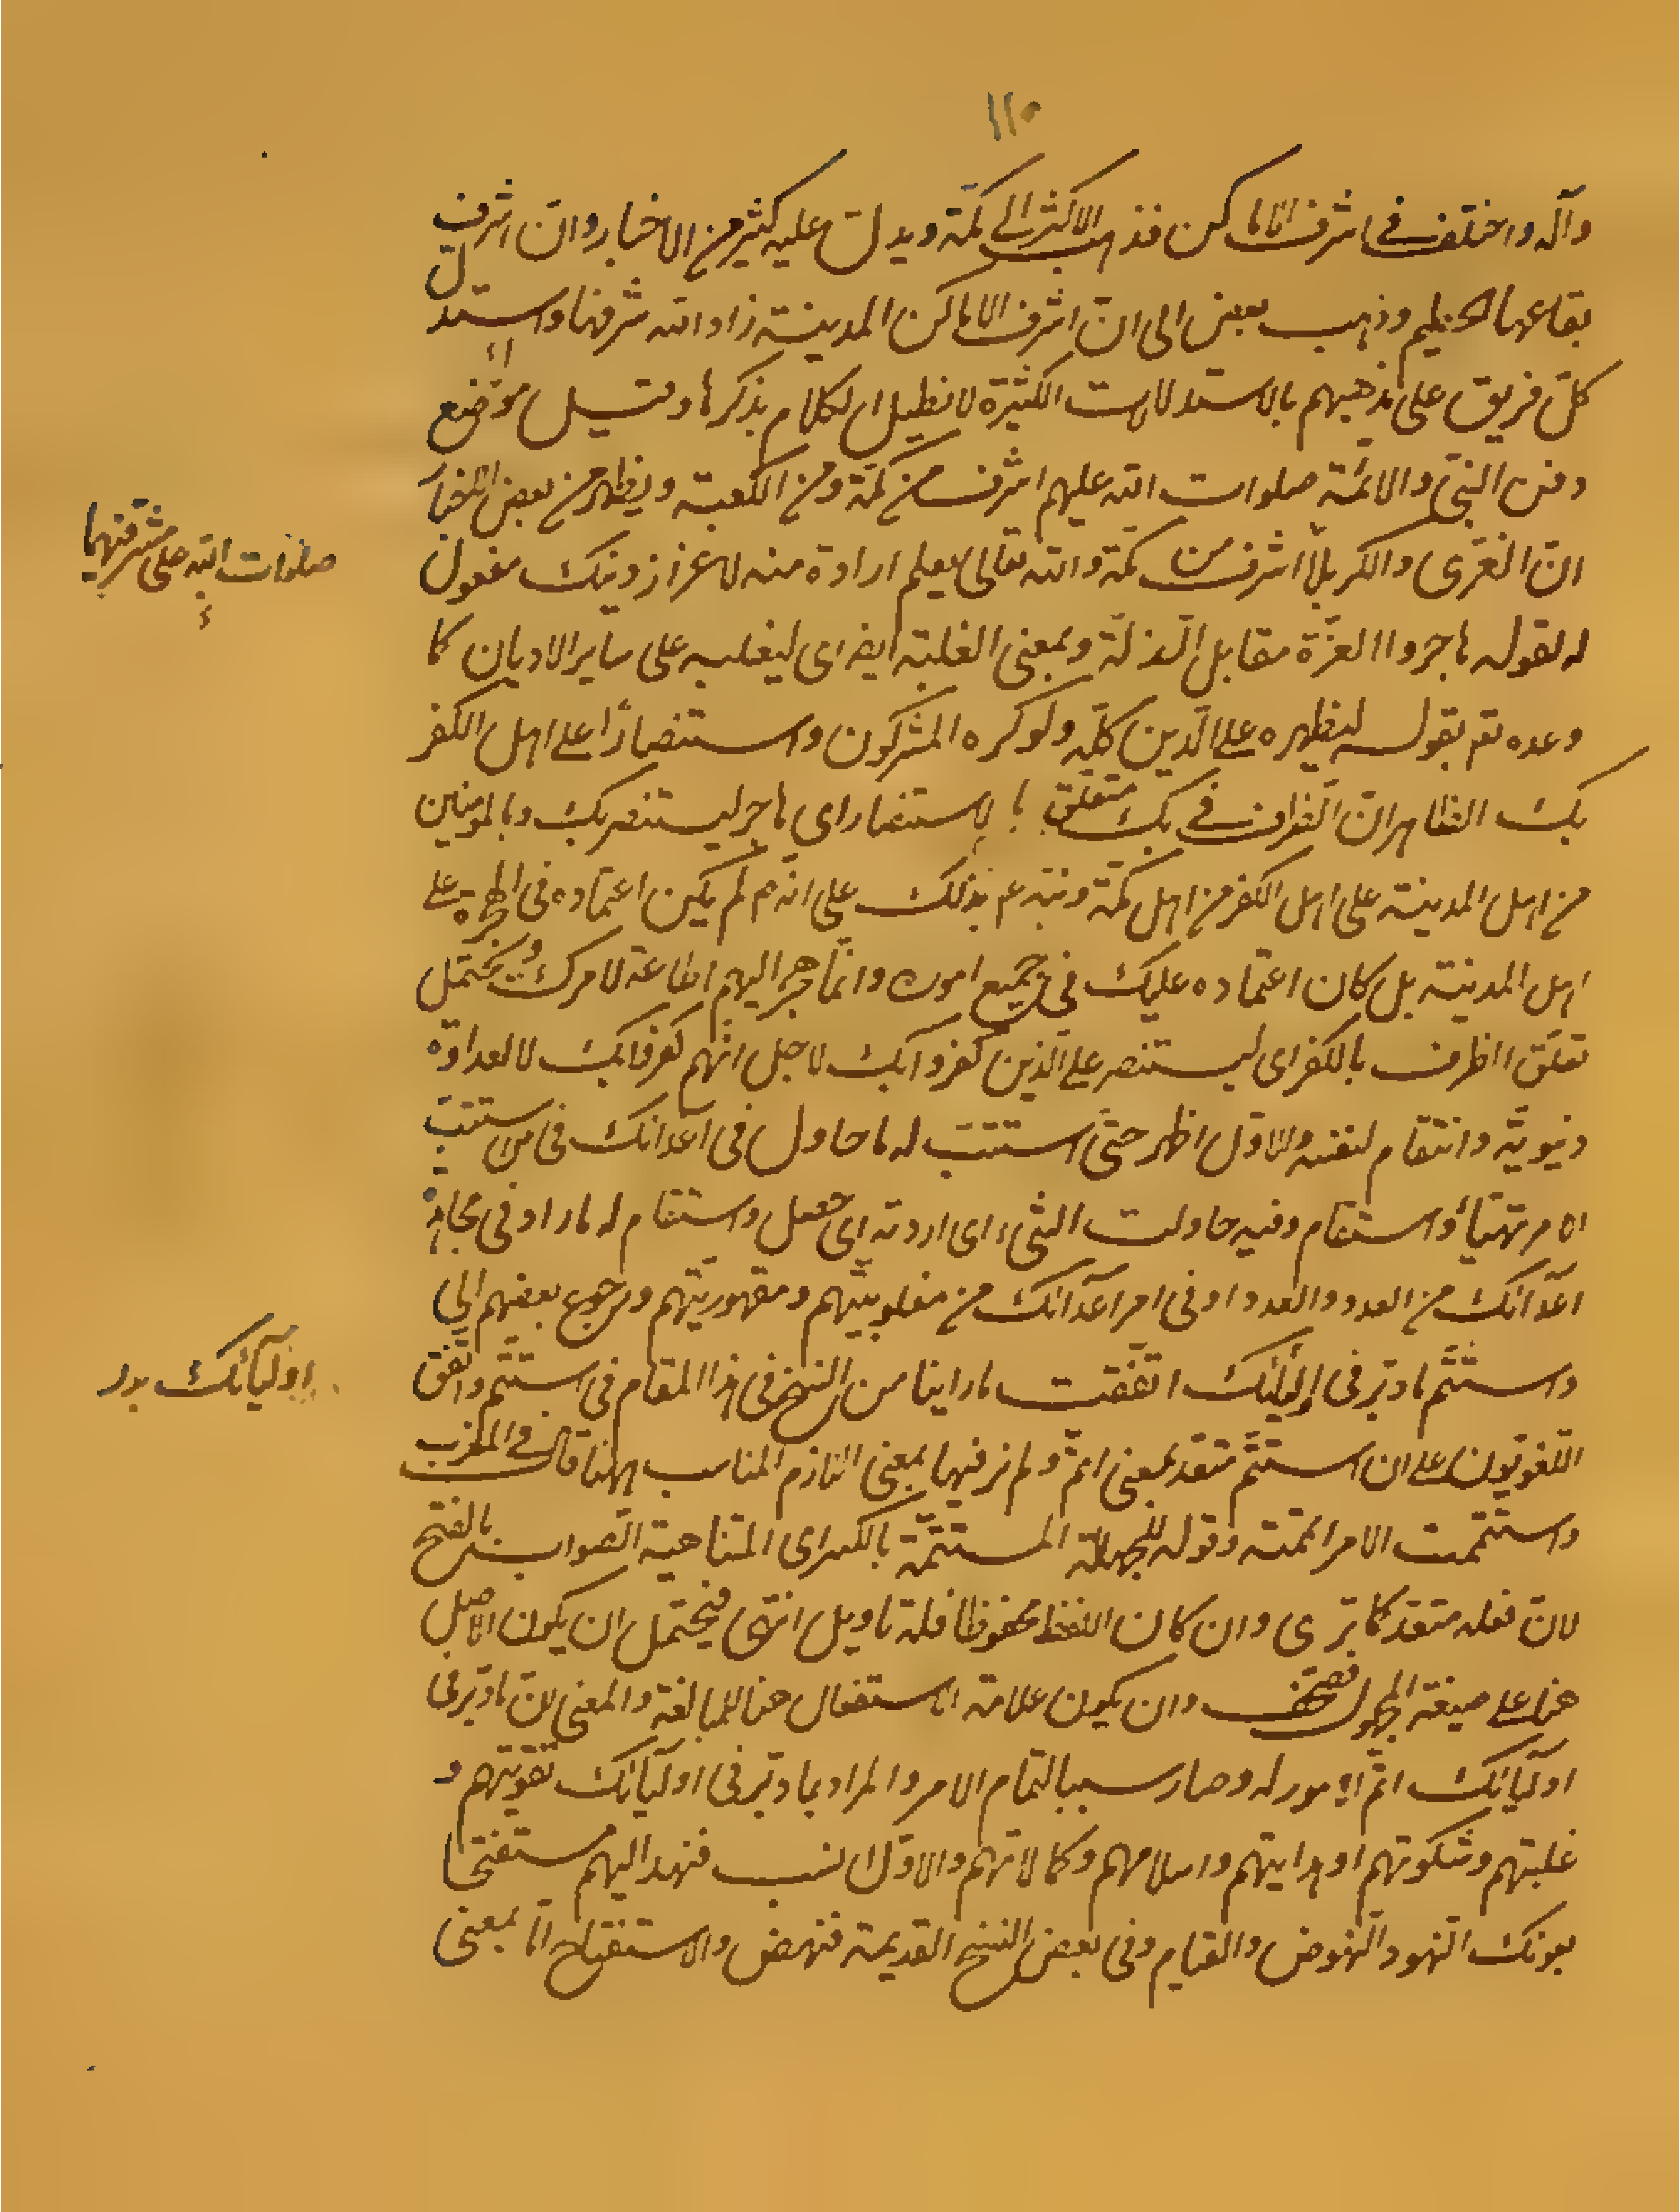 ١١٠
وآله واختلف في اشرف الاماكن فذهب الاكثر الى مكّة ويدلّ عليه كثير من الاخبار وانّ اشرف
بقاعها الحطيم وذهب بعض الى انّ اشرف الاماكن المدينة زاد الله شرفها واستدلّ
كلّ فريق على مذهبهم بالاستدلالات الكثيرة لا نطيل الكلام بذكرها وقيل مواضع
دفن النبيّ والائمّة صلوات الله عليهم اشرف من مكّة ومن الكعبة ويظهر من بعض الاخبار
انّ الغرى والكربلا اشرف من مكّة والله تعالى يعلم ارادة منه لاعزاز دينك مفعول
صلوات الله على مشرفيهما
له لقوله هاجر والعزّة مقابل الذلّة وبمعنى الغلبة ايض اى ليغلبه على ساير الاديان كما
وعده تع بقوله ليظهره على الدّين كلّه ولو كره المشركون واستنصارًا على اهل الكفر
بك الظاهر انّ الظرف في بك متعلّق بالاستنصار اى هاجر ليستنصر بك وبالمومنين
من اهل المدينة على اهل الكفر من اهل مكّة ونبّه ع بذلك على انّه م لم يكن اعتماده فى الهجرة على
اهل المدينة بل كان اعتماده عليك فى جميع اموره وانّما هاجر اليهم اطاعة لامرك ويحتمل
تعلّق الظرف بالكفر اى ليستنصر على الّذين كفروا بك لاجل انّهم كفروا بك لا لعداوة
دنيويّة وانتقام لنفسه والاوّل اظهر حتّى استتبّ له ما حاول فى اعدائك فى استتبّ
الامر تهيّأ واستقام وفيه حاولت الشىء اى اردته اى حصل واستقام له ما راد فى مجاهدة
اعدآئك من العدد والعدد او فى امر اعدآئك من مغلوبيّتهم ومقهوريّتهم ورجوع بعضهم الى
واستتمّ ما دبّر فى اوليائك اتّفقت ما راينا من النسخ فى هذا المقام فى استتمّ واتّفق
اوليآئك بدر
اللغويّون على ان استتمّ متعّد بمعنى اتمّ ولم نر فيها بمعنى اللازم المناسب ههنا قال في المغرب
واستتممت الامر اتممته وقوله للجهالة المستتمّة بالكسر اى المتناهية الصواب بالفتح
لانّ فعله متعّد كما ترى وان كان اللفظ محفوظا فله تاويل انتهى فيحتمل ان يكون الاصل
هنا على صيغة المجهول فصحّف وان يكون علامة الاستفعال هنا للمبالغة والمعنى لانّ ما دبّر فى
اوليآئك اتمّ الامور له وصار سببا لتمام الامر والمراد بما دبّر فى اوليآئك تقويتهم و
غلبتهم وشكوتهم او هدايتهم واسلامهم وكمالاتهم والاوّل انسب فنهد اليهم مستفتحا
بعونك النّهود النّهوض والقيام وفى بعض النسخ القديمة فنهض والاستفتاح امّا بمعنى